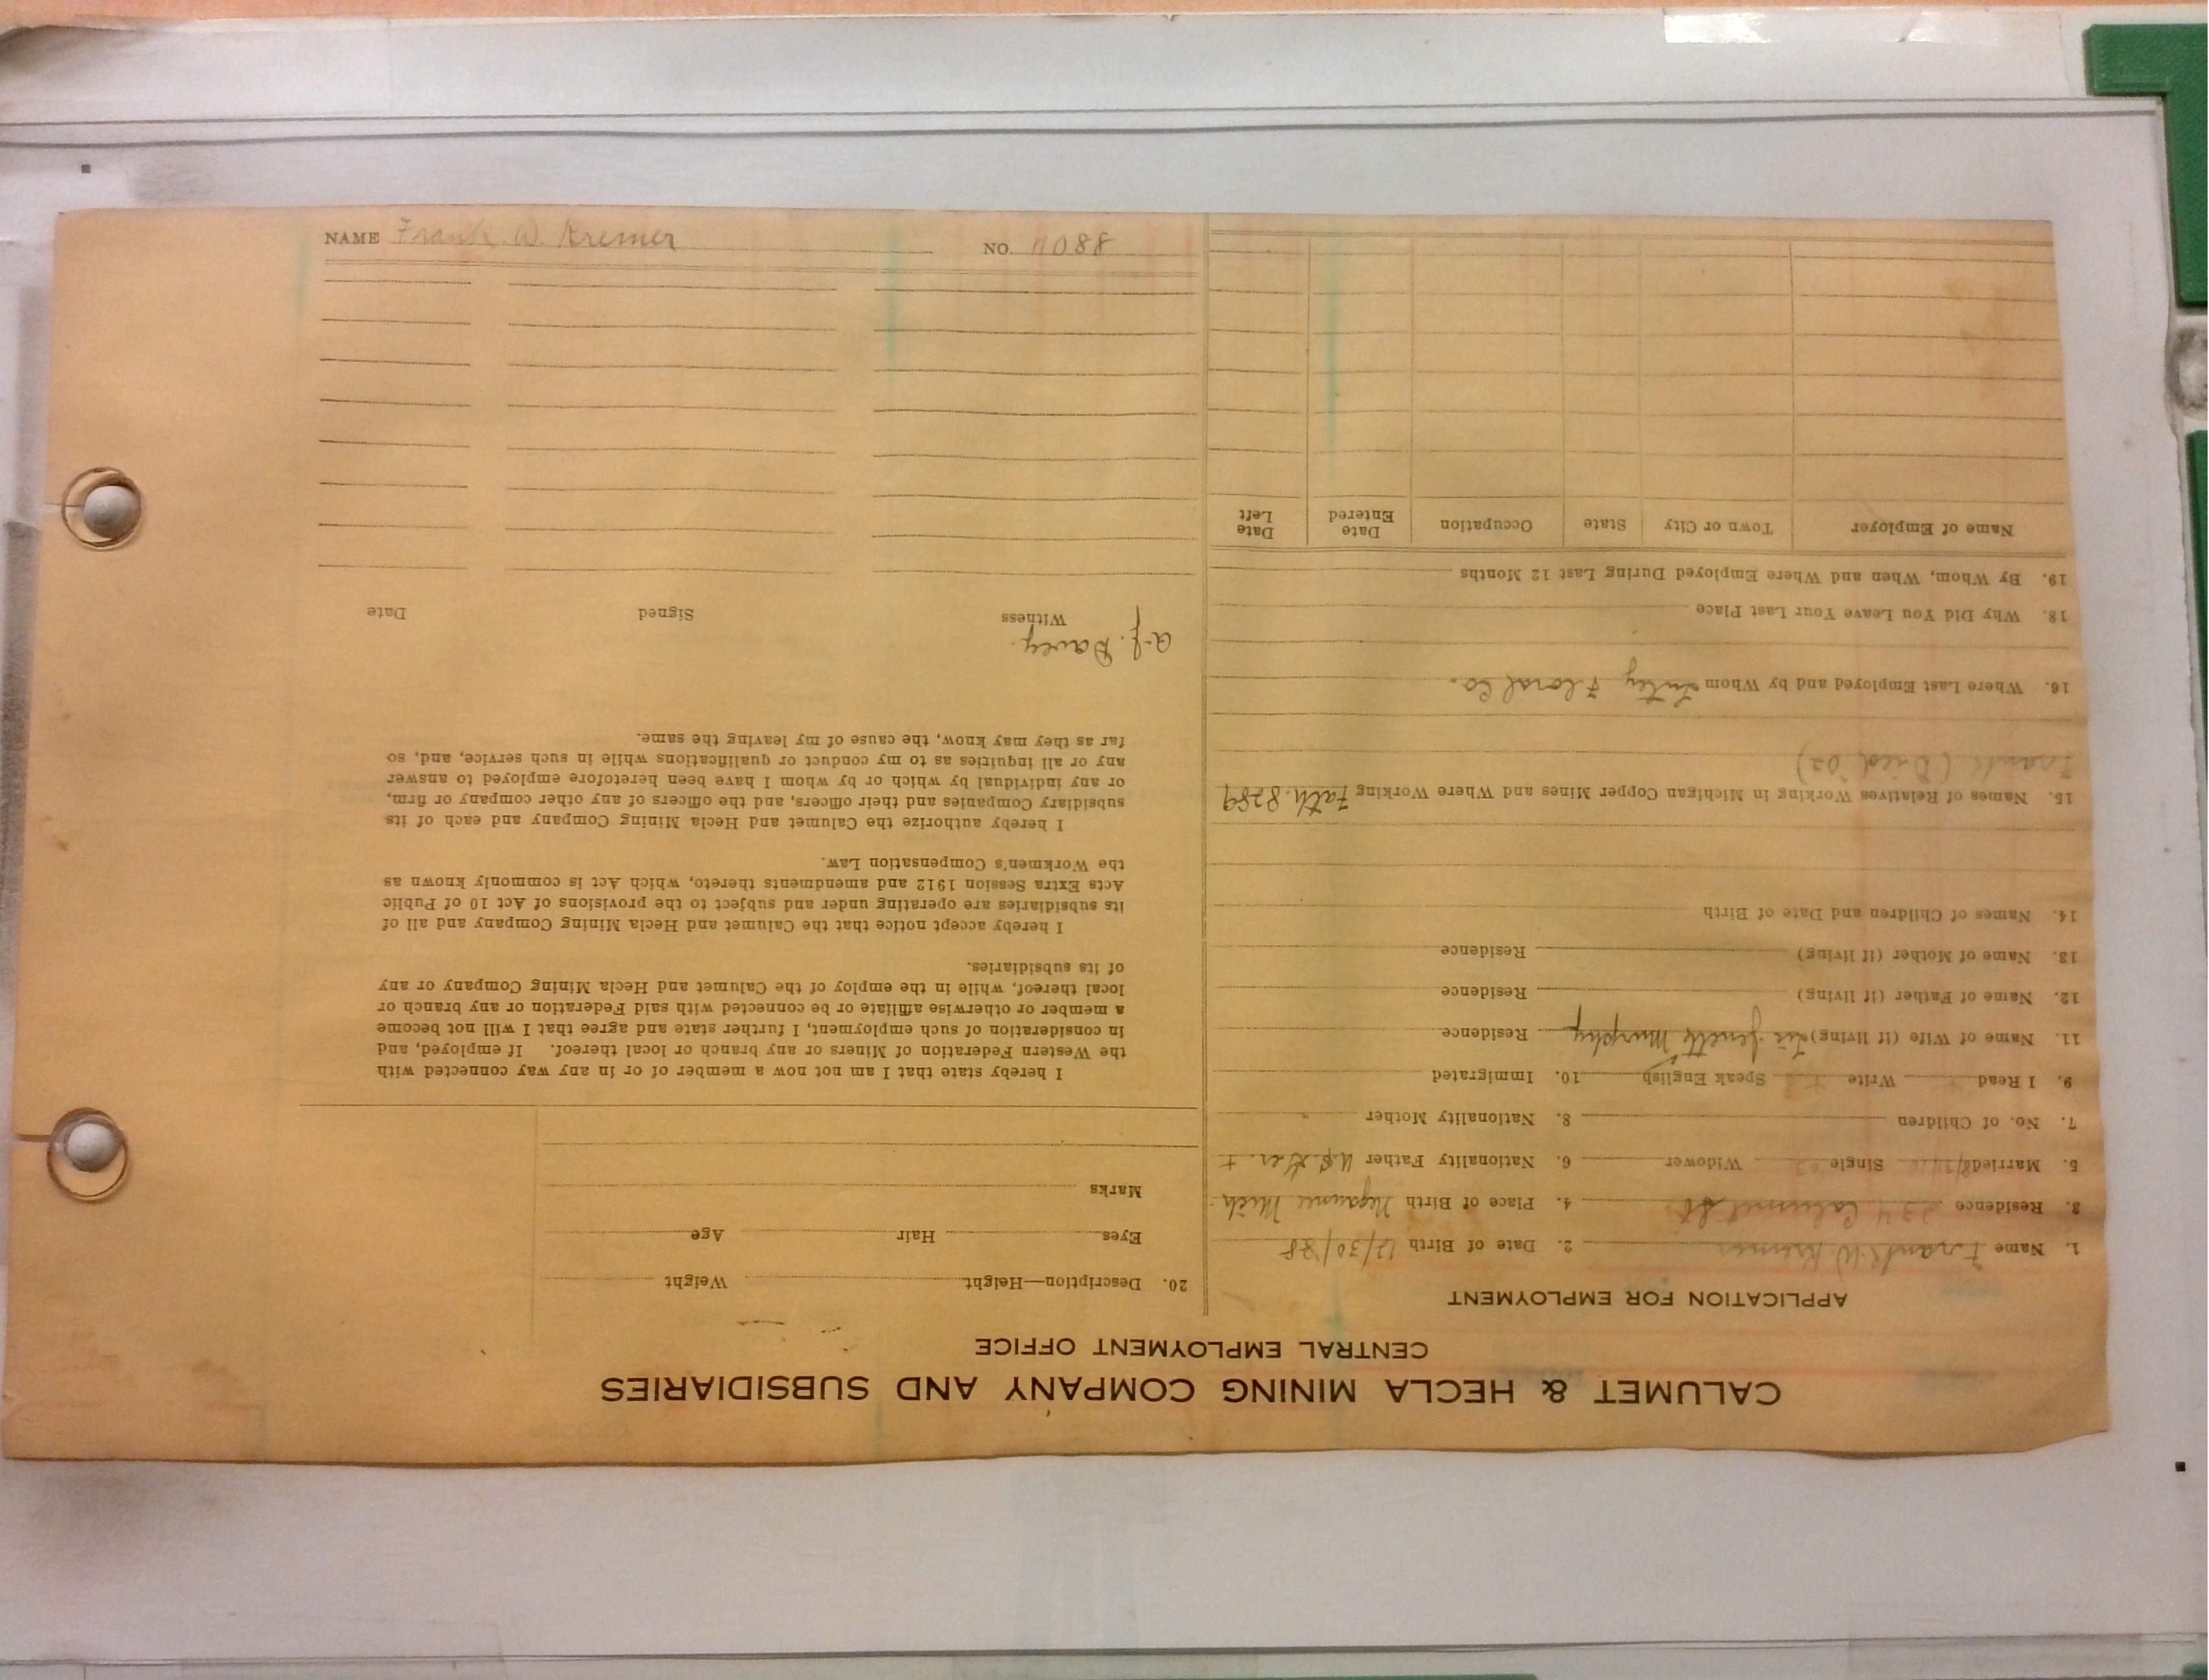 CALUMET & HECLA MINING COMPANY AND SUBSIDIARIES
CENTRAL EMPLOYMENT OFFICE
APPLICATION FOR EMPLOYMENT
1. Name Frank W Kremer 2. Date of Birth 12/30/88
3. Residence Calumet St 4. Place of Birth Negaunee Mich.
5. Married Single Widower 6. Nationality Father
7. No. of Children 8. Nationality Mother "
9. I Read Write Speak English 10. Immigrated
11. Name of Wife (if living) Murphy Residence
12. Name of Father (if living) Residence
13. Name of Mother (if living) Residence
14. Names of Children and Date of Birth
15. Names of Relatives Working in Michigan Copper Mines and Where Working Fath. 8289
Frank (Died '02)
16. Where Last Employed and by Whom Floral Co.
18. Why Did You Leave Your Last Place
19. By Whom, When and Where Employed During Last 12 Months
Name of Employer Town or City State Occupation Date Entered Date Left
20. Description—Height Weight
Eyes Hair Age
Marks
I hereby state that I am not now a member of or in any way connected with
the Western Federation of Miners or any branch or local thereof. If employed, and
in consideration of such employment, I further state and agree that I will not become
a member or otherwise affiliate or be connected with said Federation or any branch or
local thereof, while in the employ of the Calumet and Hecla Mining Company or any
of its subsidiaries.
I hereby accept notice that the Calumet and Hecla Mining Company and all of
its subsidiaries are operating under and subject to the provisions of Act 10 of Public
Acts Extra Session 1912 and amendments thereto, which Act is commonly known as
the Workmen's Compensation Law.
I hereby authorize the Calumet and Hecla Mining Company and each of its
subsidiary Companies and their officers, and the officers of any other company or firm,
or any individual by which or by whom I have been heretofore employed to answer
any or all inquiries as to my conduct or qualifications while in such service, and, so
far as they may know, the cause of my leaving the same.
a.f. Davey.
Witness Signed Date
NAME Frank. W. Kremer NO. 11088